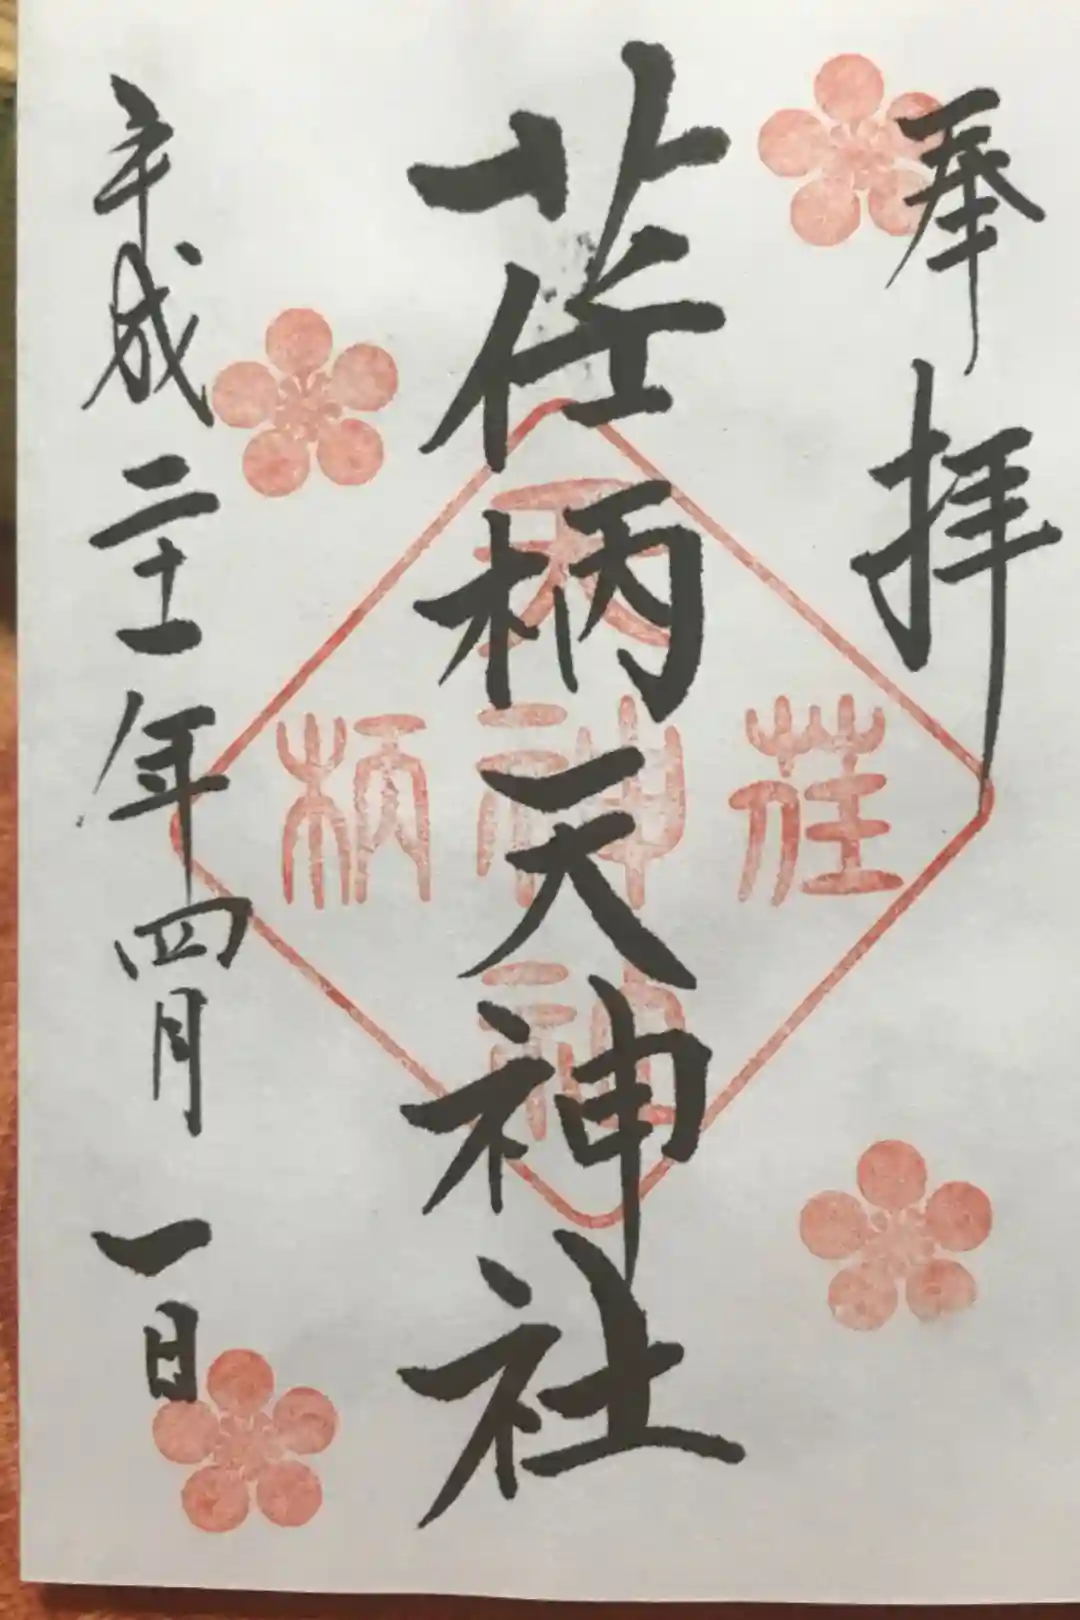 奉拝
荏柄天神社
平成二十一年四月一日
荏
柄
天
神